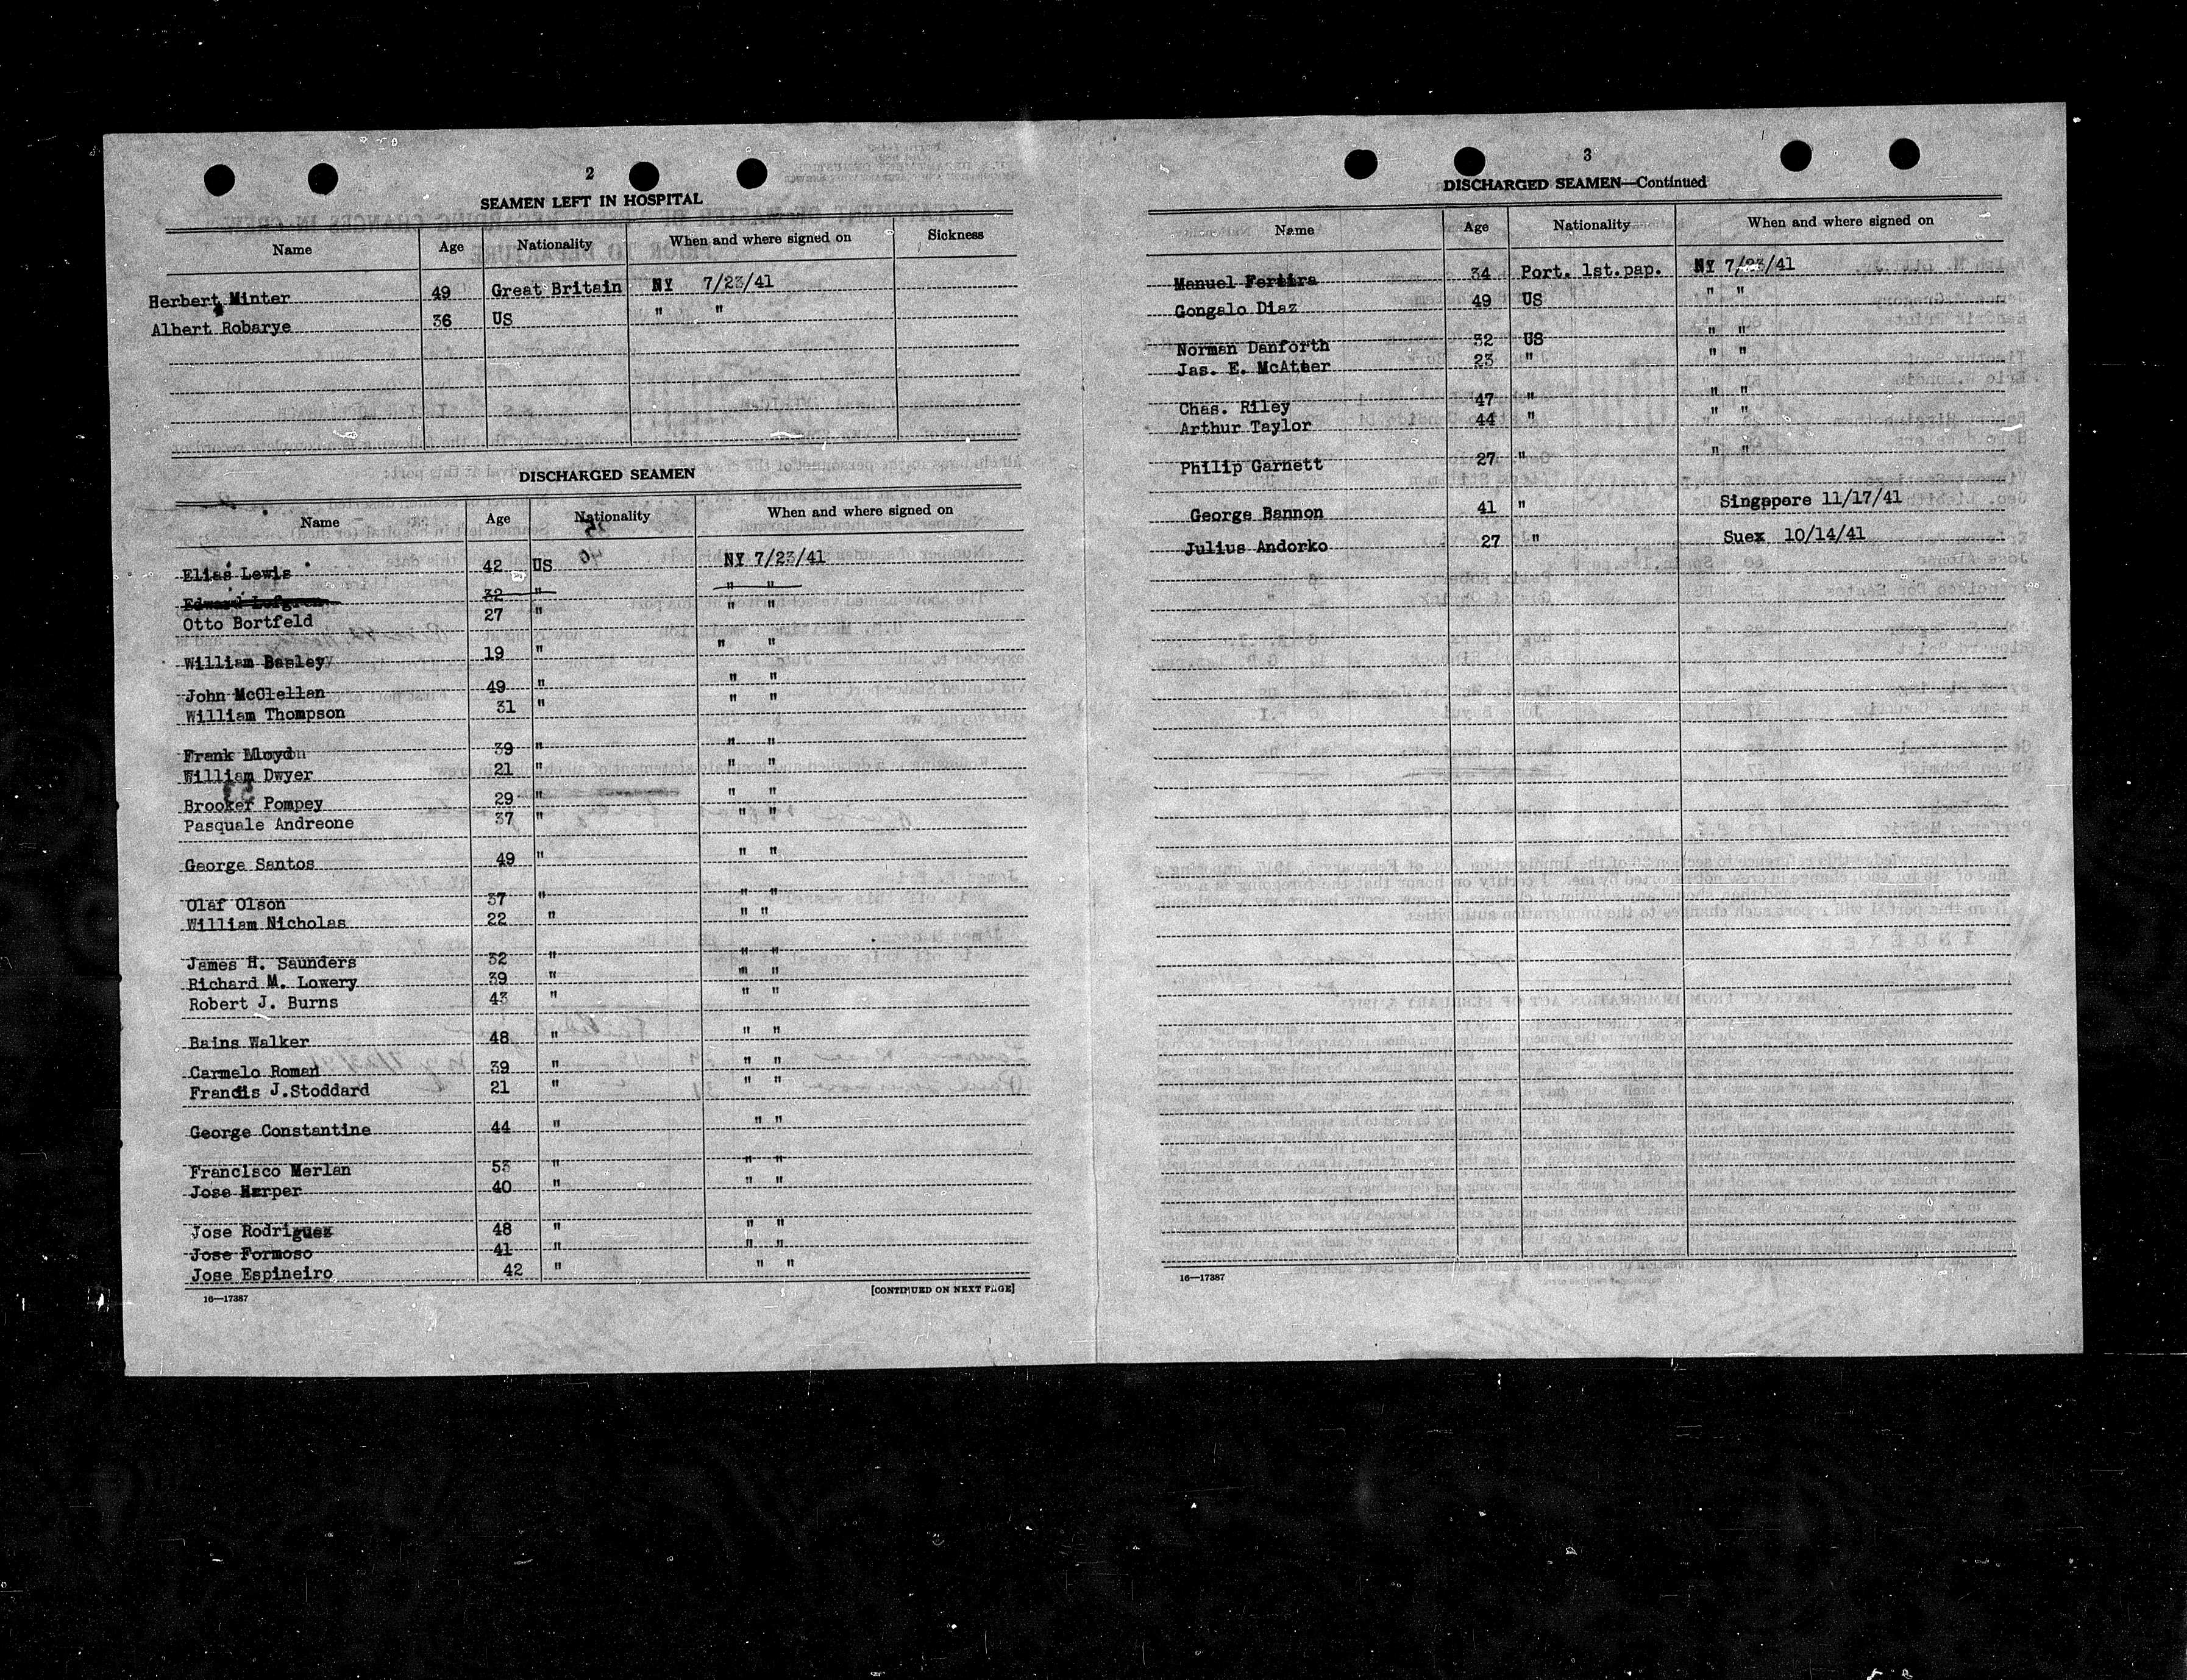 2
SEAMEN LEFT IN HOSPITAL
Name Age Nationality When and where signed on Sickness
Herbert Minter 49 Great Britain NY 7/23/41
Albert Robarye 36 US " "
DISCHARGED SEAMEN
Name Age Nationality When and where signed on
Elias Lewis 42 US NY 7/23/41
Edward Lofgren 32 " " "
Otto Bortfeld 27 " " "
William Basley 19 " " "
John McClellan 49 " " "
William Thompson 31 " " "
Frank 39 " " "
William Dwyer 21 " " "
Brooker Pompey 29 " " "
Pasquale Andreone 37 " " "
George Santos 49 " " "
Olaf Olson 37 " " "
William Nicholas 22 " " "
James H. Saunders 32 " " "
Richard M. Lowery 39 " " "
Robert J. Burns 43 " " "
Bains Walker 48 " " "
Carmelo Roman 39 " " "
Francis J.Stoddard 21 " " "
George Constantine 44 " " "
Francisco Merlan 53 " " "
Jose Harper 40 " " "
Jose Rodriguez 48 " " "
Jose Formoso 41 " " "
Jose Espineiro 42 " " "
16—17387
[CONTINUED ON NEXT PAGE]
3
DISCHARGED SEAMEN—Continued
Name Age Nationality When and where signed on
Manuel Fereira 34 Port. 1st.pap. NY 7/23/41
Gongalo Diaz 49 US " "
Norman Danforth 32 US " "
Jas. E. McAteer 23 " " "
Chas. Riley 47 " " "
Arthur Taylor 44 " " "
Philip Garnett 27 " " "
George Bannon 41 " Singapore 11/17/41
Julius Andorko 27 " Suex 10/14/41
16—17387